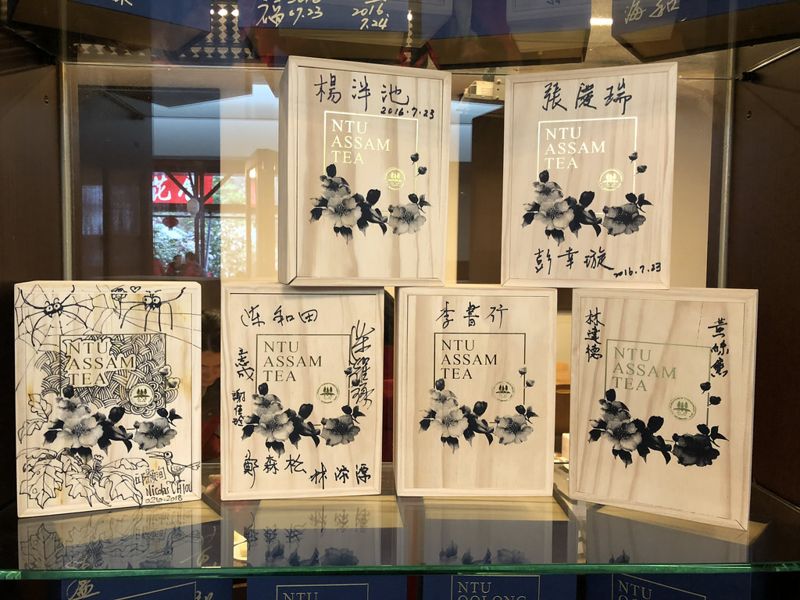 福
2016
7.24
楊泮池
2016.7.23
NTU
ASSAM
TEA
張慶瑞
NTU
ASSAM
TEA
彭幸璇
2016.7.23
NTU
ASSAM
TEA
Nicolas CHIOU
連和田
志成
NTU
ASSAM
TEA
鄭森松
李書行
NTU
ASSAM
TEA
林達德
NTU
ASSAM
TEA
NTU
NTU
OOLONG
NTU